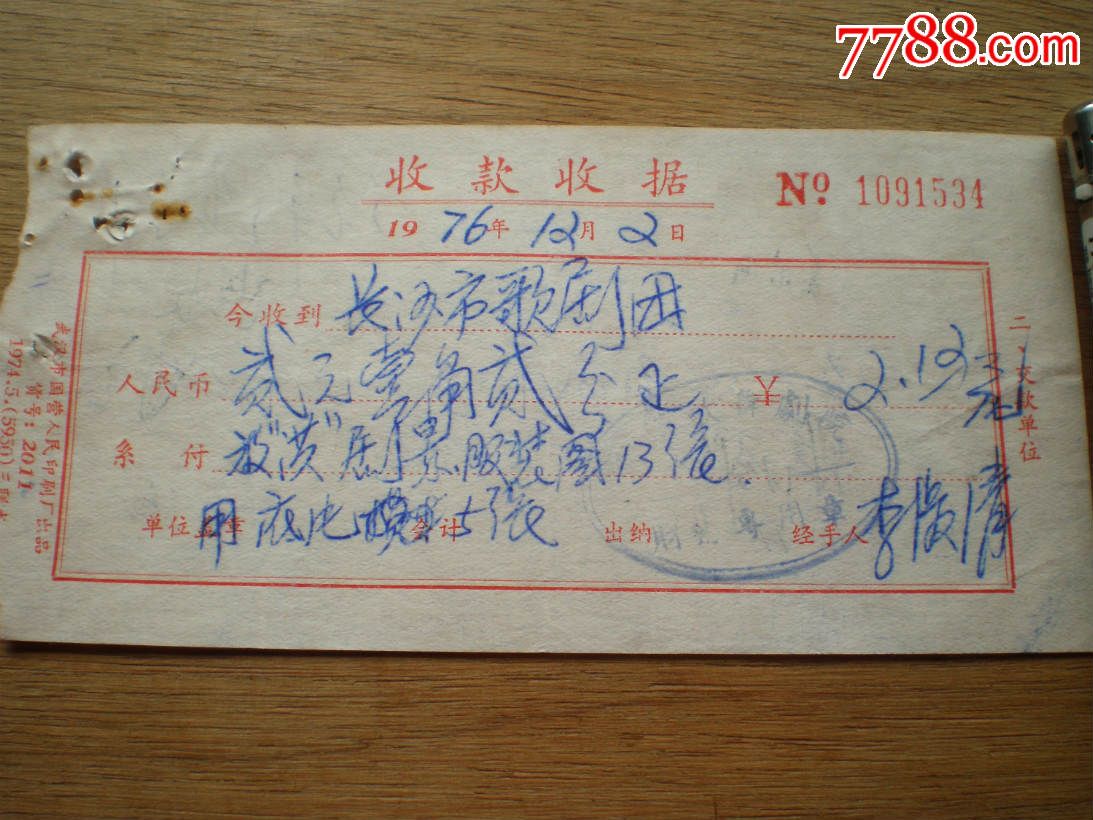 7788.com
收款收据
No 1091534
1976年12月2日
今收到 长沙市歌剧团
人民币 贰元壹角贰分正 ¥ 2.12元
系付 放"洪"剧景服装图13张.
用底片 5张
单位盖章 会计 出纳 经手人 李
二、交款单位
武汉市国营人民印刷厂出品
货号：2011
1974.5.(5950)三联